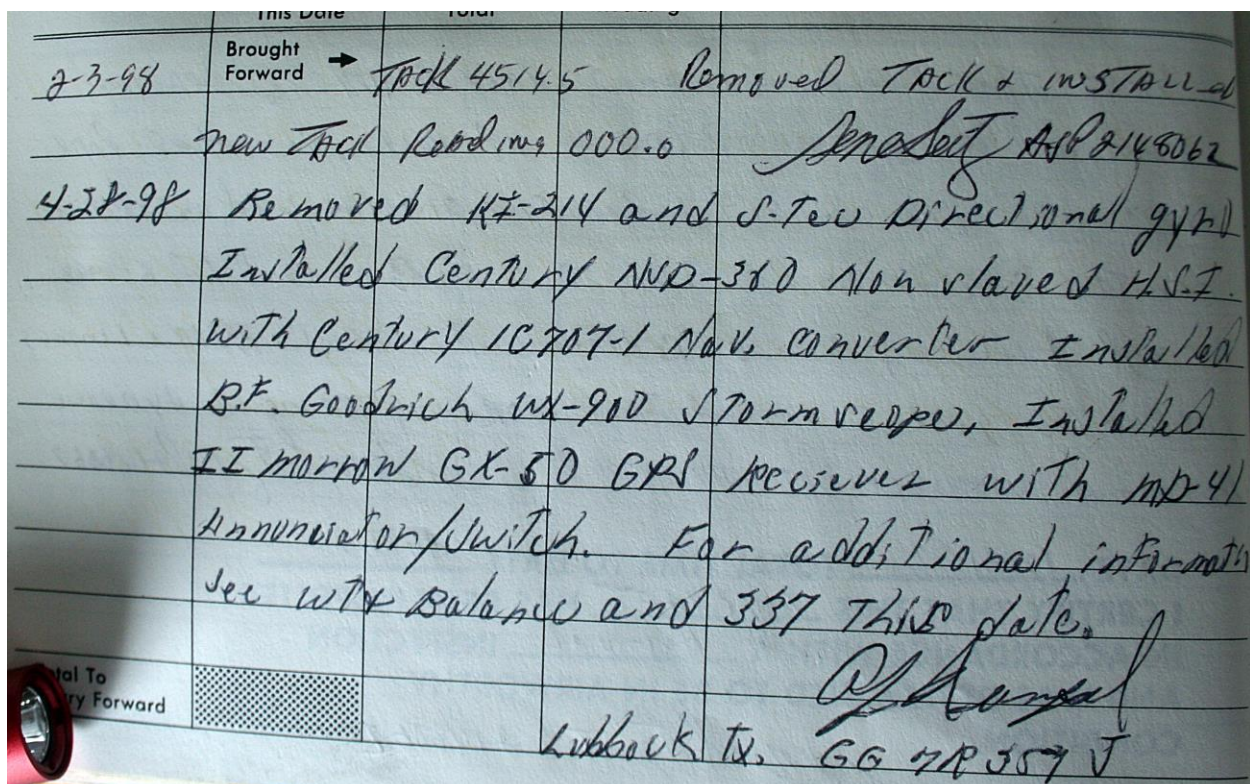 This Date Total
Brought
Forward
2-3-98 TACK 4514.5 Removed TACK & INSTALLed
new TACK Reading 000.0 A&P 2148062
4-28-98 Removed KI-214 and S-Tec Directional gyro
Installed Century NSD-360 Non slaved H.S.I.
With Century 1C707-1 Nav. converter Installed
B.F. Goodrich WX-900 Stormscope, Installed
II morrow GX-50 GPS Reciever with MD-41
Annunciator/Switch. For additional informati
See WT & Balance and 337 This date.
tal To
ry Forward
Lubbock Tx. GG 7R 357 J